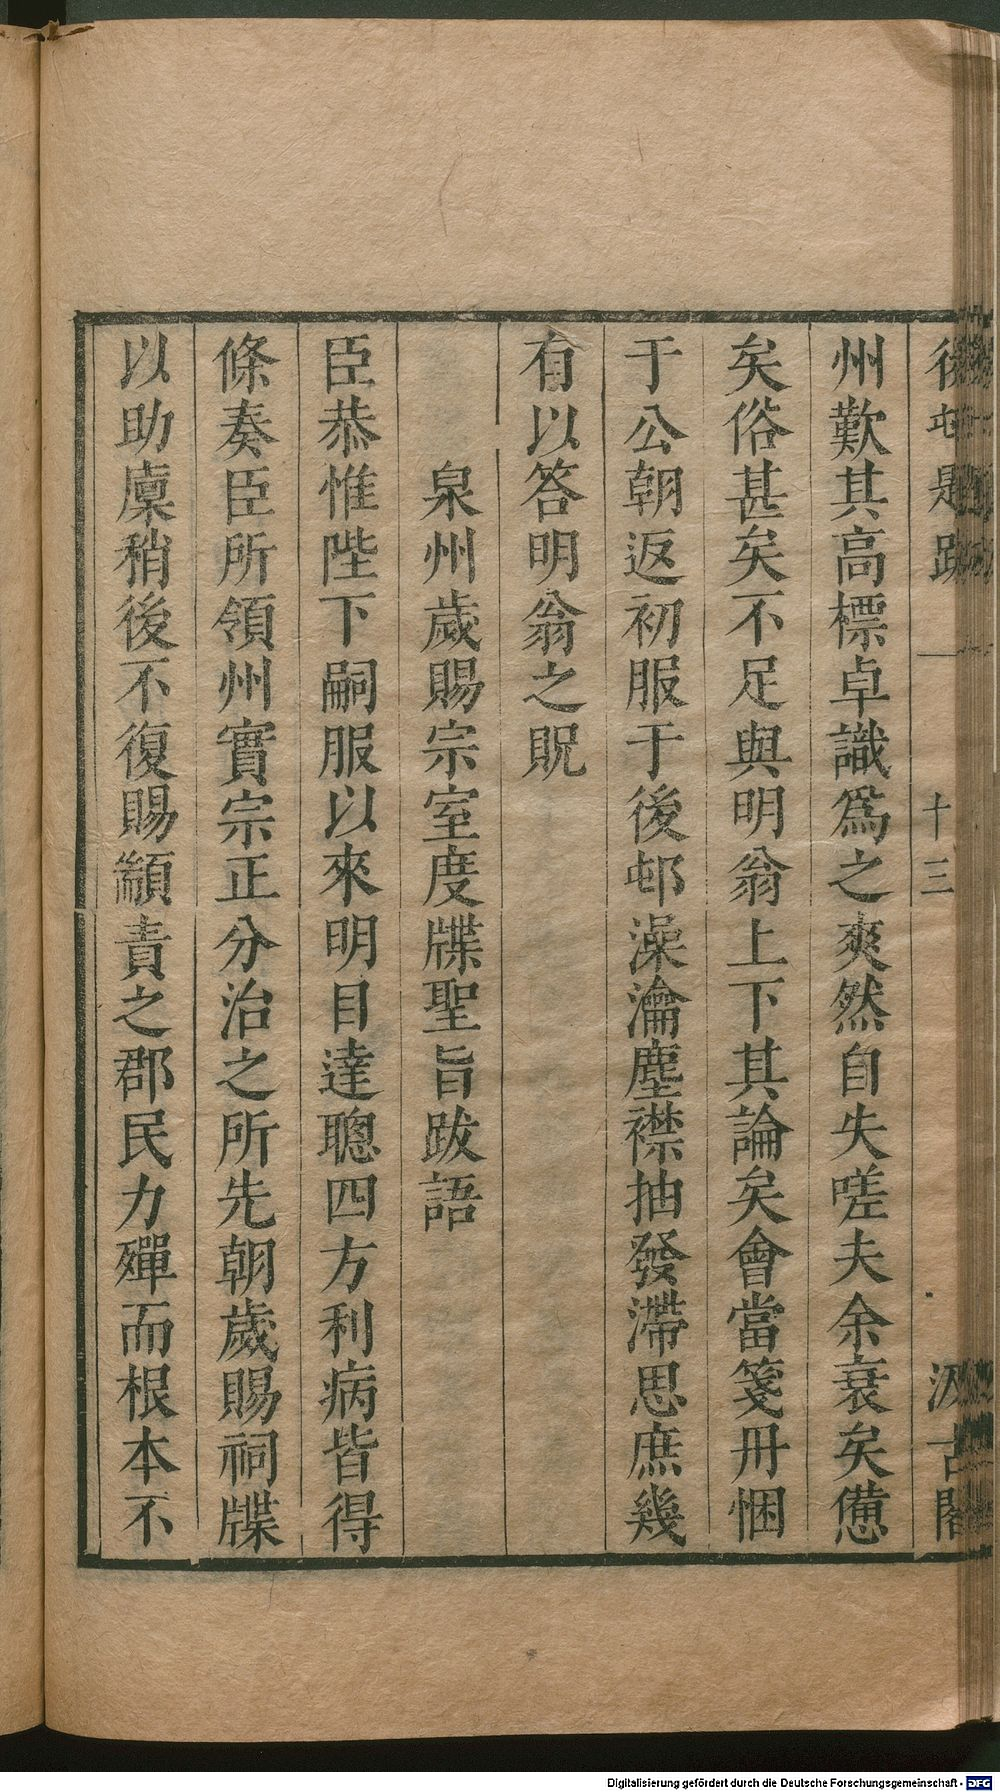 後邨題跋 一 十三 汲古閣
州歎其高標卓識爲之爽然自失嗟夫余衰矣憊
矣俗甚矣不足與明翁上下其論矣會當箋丹悃
于公朝返初服于後邨澡瀹塵襟抽發滯思庶幾
有以答明翁之貺
泉州歲賜宗室度牒聖旨跋語
臣恭惟陛下嗣服以來明目達聰四方利病皆得
條奏臣所領州實宗正分治之所先朝歲賜祠牒
以助廩稍後不復賜顓責之郡民力殫而根本不
Digitalisierung gefördert durch die Deutsche Forschungsgemeinschaft - DFG